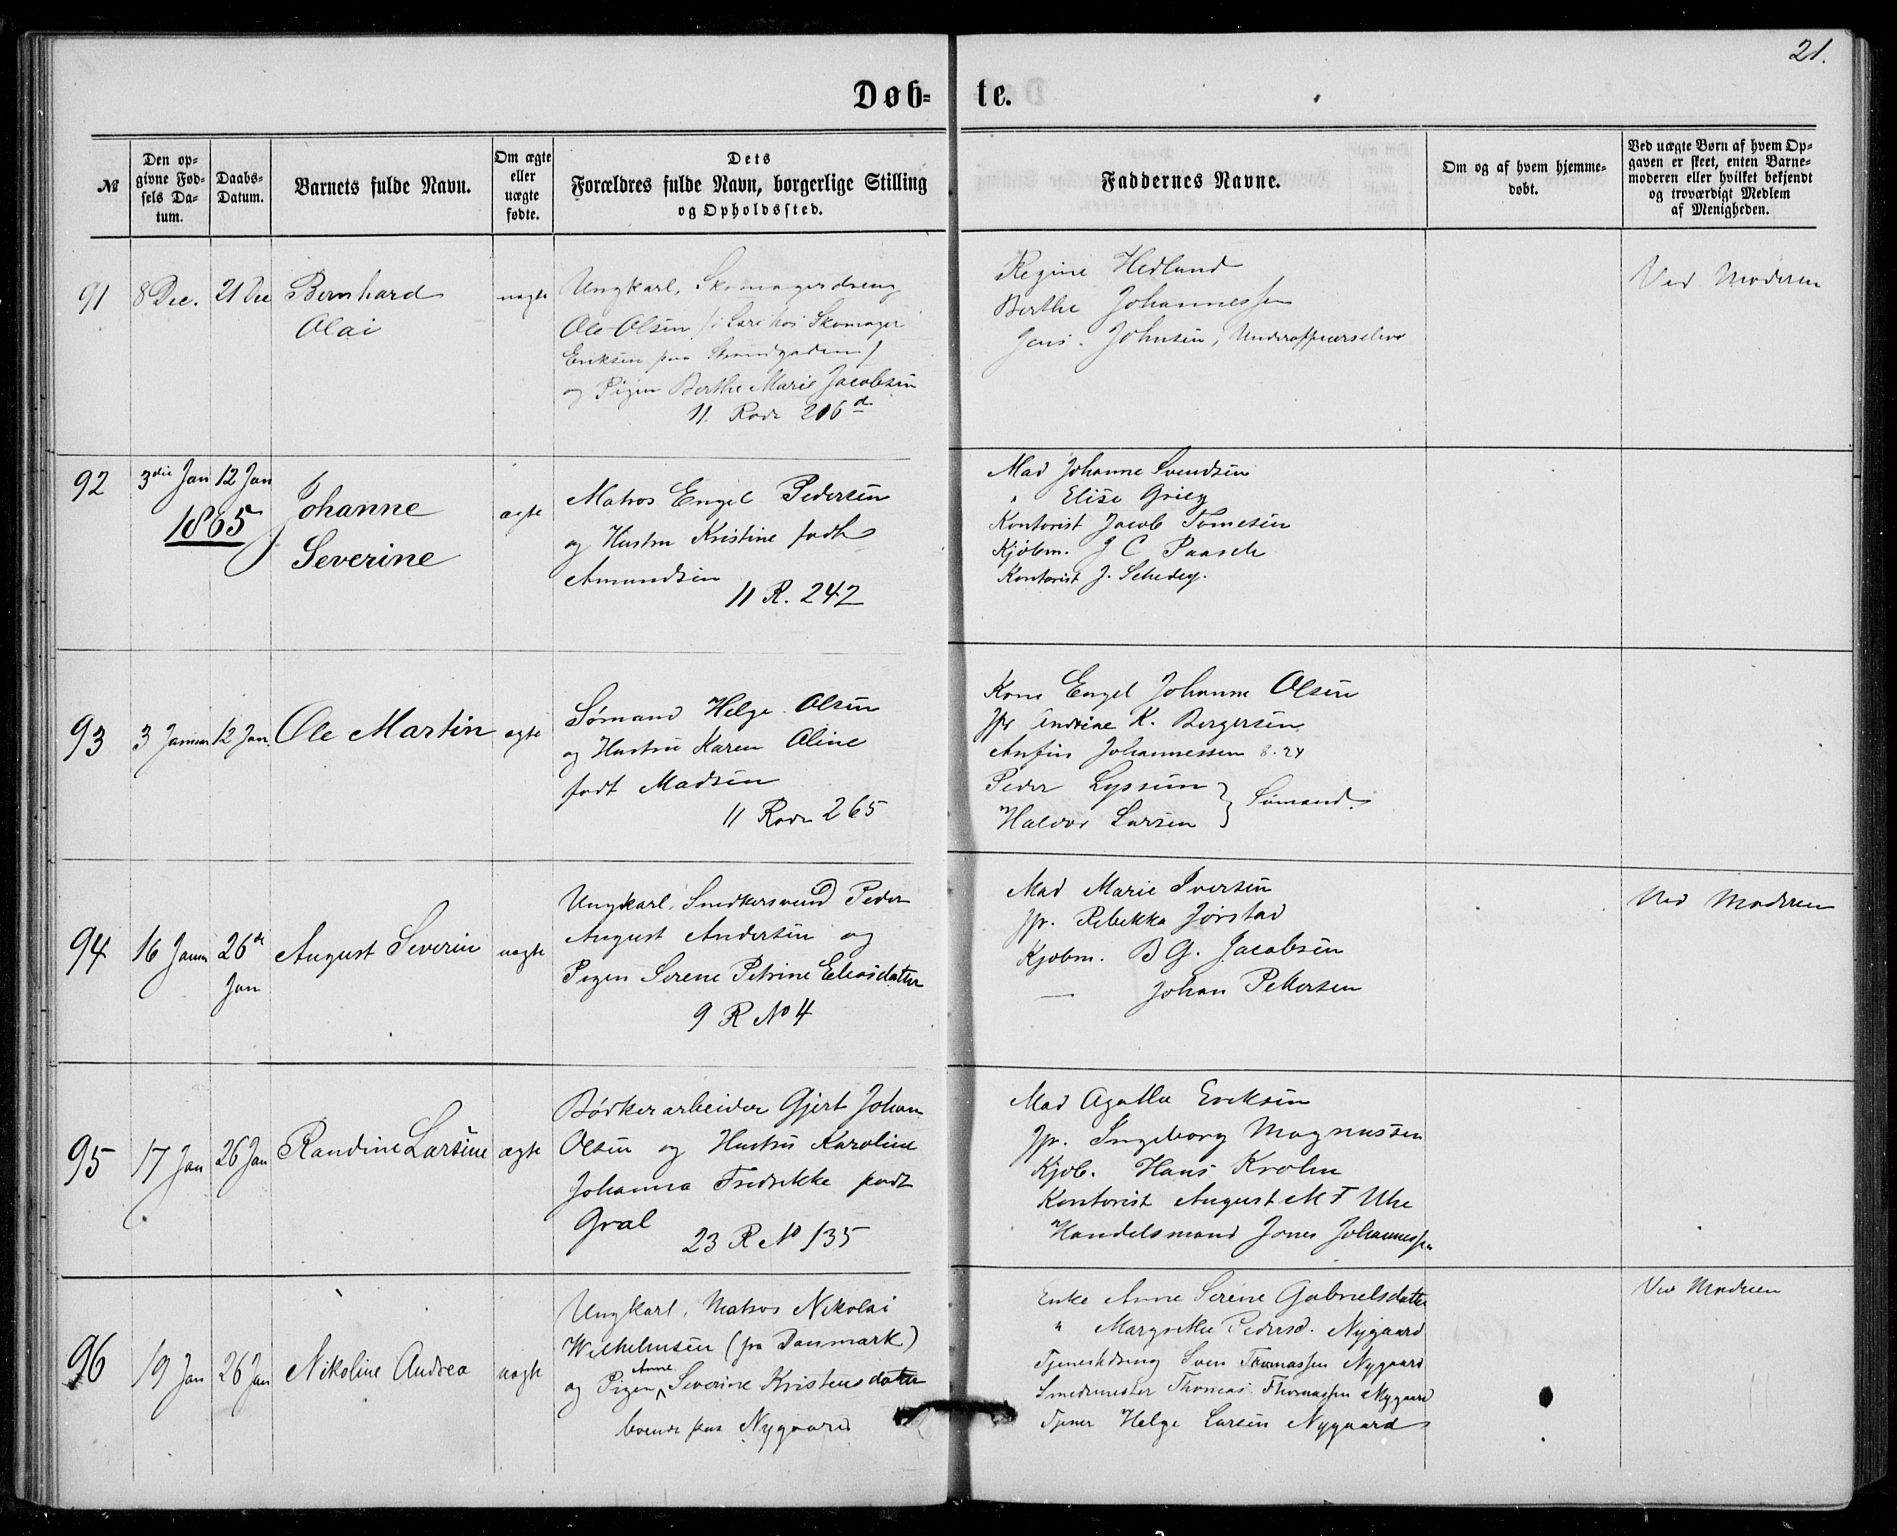 21.
Døb- te.
№
Den opgivne Fødsels Datum.
Daabs-Datum.
Barnets fulde Navn.
Om ægte eller uægte fødte.
Dets Forældres fulde Navn, borgerlige Stilling og Opholdssted.
Faddernes Navne.
Om og af hvem hjemmedøbt.
Ved uægte Børn af hvem Opgaven er skeet, enten Barnemoderen eller hvilket bekjendt og troværdigt Medlem af Menigheden.
91 8 Dec. 21 Dec Bernhard Olai uægte
Ungkarl, Skomagerdreng
Ole Olsen (i Lære hos Skomager
Eriksen paa Strandgaden)
og Pigen Berthe Marie Jacobsen
11. Rode 206 d
Regine Hedlund
Berthe Johannessen
Jens Johnsen, Underofficerselev
Ved Moderen
92 3die Jan 12 Jan
1865
Johanne
Severine
ægte
Matros Engel Pedersen
og Hustru Kristine født
Amundsen
11 R. 242
Mad Johanne Svendsen
" Elise Grieg
Kontorist Jacob Tomesen
Kjøbm. J C Paasch
Kontorist J. Schedey.
93 3 Januar 12 Jan. Ole Martin ægte
Sømand Helge Olsen
og Hustru Karen Oline
født Madsen
11 Rode 265
Kone Engel Johanne Olsen
Jfr Andrine K. Bergersen
Anfin Johannessen 8.24
Peder Lyssen
Haldor Larsen } Sømænd
94 16 Januar 26de Jan August Severin uægte
Ungkarl, Snedkersvend Peder
August Andersen og
Pigen Serene Petrine Eliasdatter
9 R No 4
Mad Marie Iversen
Jfr. Rebekka Jørstad
Kjøbm. B G. Jacobsen
— Johan Pettersen
Ved Moderen
95 17 Jan 26 Jan Randine Larsine ægte
Bødkerarbeider Gjert Johan
Olsen og Hustru Karoline
Johanna Fredrikke født
Gral
23 R No 135
Mad Agathe Eriksen
Jfr. Ingeborg Magnussen
Kjøb. Hans Krohn
Kontorist August M F Uhe
Handelsmand Jones Johannessen
96 19 Jan 26 Jan Nikoline Andrea uægte
Ungkarl, Matros Nikolai
Wilhelmsen (fra Danmark)
og Pigen Anne Severine Kristensdatter
boende paa Nygaard
Enke Anne Serine Gabrielsdatter
" Margrethe Pedersd. Nygaard
Tjenestdreng Sven Thomassen Nygaard
Smedmester Thomas Thomassen Nygaard
Tjener Helge Larsen Nygaard
Ved Moderen